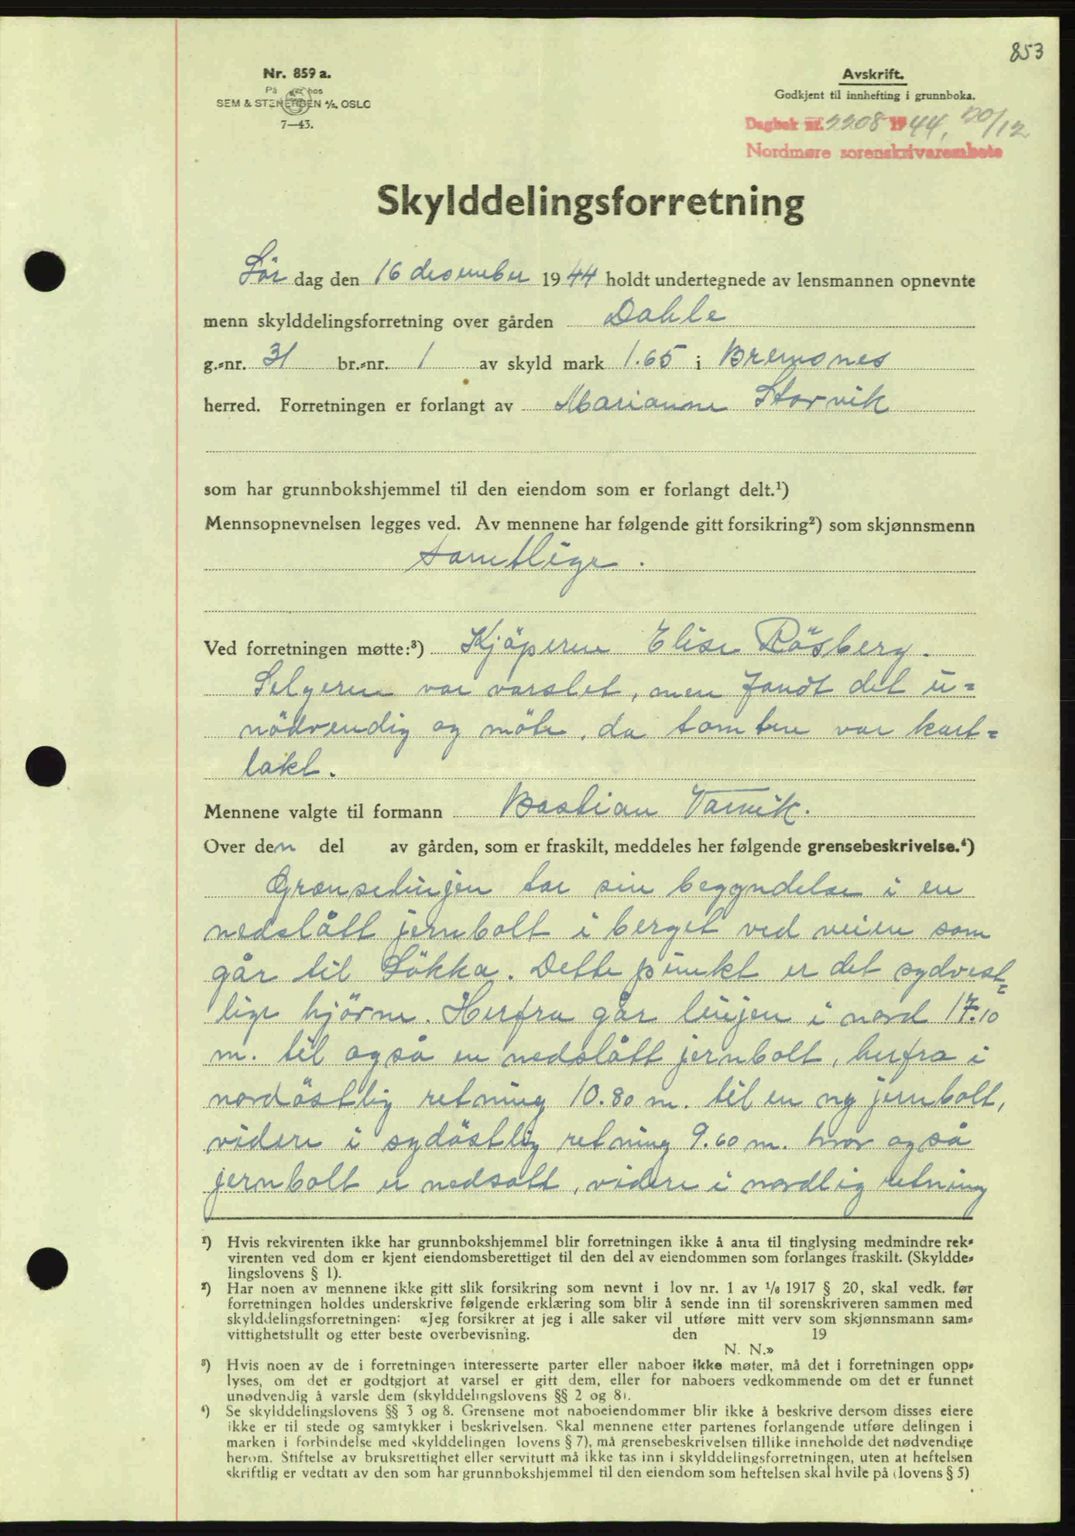 853
Nr. 859 a.
På lager hos
SEM & STENERSEN A/S, OSLO
7—43.
Avskrift.
Godkjent til innhefting i grunnboka.
Dagbok nr. 2208 1944, 20/12
Nordmøre sorenskrivarembete
Skylddelingsforretning
Lör dag den 16 desember 1944 holdt undertegnede av lensmannen opnevnte
menn skylddelingsforretning over gården Dahle
g.-nr. 31 br.-nr. 1 av skyld mark 1.65 i Bremsnes
herred. Forretningen er forlangt av Marianne Storvik
som har grunnbokshjemmel til den eiendom som er forlangt delt.¹)
Mennsopnevnelsen legges ved. Av mennene har følgende gitt forsikring²) som skjønnsmenn
samtlige.
Ved forretningen møtte:³) Kjöperen Elise Rösberg.
Selgeren var varslet, men fandt det u-
nödvendig og möte, da tomten var kart-
lakt.
Mennene valgte til formann Bastian Varvik.
Over den del av gården, som er fraskilt, meddeles her følgende grensebeskrivelse.⁴)
Grenselinjen tar sin begyndelse i en
nedslått jernbolt i berget ved veien som
går til Lökka. Dette punkt er det sydvest-
lige hjörne. Herfra går linjen i nord 17.10
m. til også en nedslått jernbolt, herfra i
nordöstlig retning 10.80 m. til en ny jernbolt,
videre i sydöstlig retning 9.60 m. hvor også
jernbolt er nedsatt, videre i nordlig retning
¹) Hvis rekvirenten ikke har grunnbokshjemmel blir forretningen ikke å anta til tinglysing medmindre rek-
virenten ved dom er kjent eiendomsberettiget til den del av eiendommen som forlanges fraskilt. (Skyldde-
lingslovens § 1).
²) Har noen av mennene ikke gitt slik forsikring som nevnt i lov nr. 1 av 1/6 1917 § 20, skal vedk. før
forretningen holdes underskrive følgende erklæring som blir å sende inn til sorenskriveren sammen med
skylddelingsforretningen: «Jeg forsikrer at jeg i alle saker vil utføre mitt verv som skjønnsmann sam-
vittighetsfullt og etter beste overbevisning. den 19
N. N.»
³) Hvis noen av de i forretningen interesserte parter eller naboer ikke møter, må det i forretningen opp-
lyses, om det er godtgjort at varsel er gitt dem, eller for naboers vedkommende om det er funnet
unødvendig å varsle dem (skylddelingslovens §§ 2 og 8).
⁴) Se skylddelingslovens §§ 3 og 8. Grensene mot naboeiendommer blir ikke å beskrive dersom disses eiere
ikke er til stede og samtykker i beskrivelsen. Skal mennene etter partenes forlangende utføre delingen i
marken i forbindelse med skylddelingen (lovens § 7), må grensebeskrivelsen tillike inneholde det nødvendige
herom. Stiftelse av bruksrettighet eller servitutt må ikke tas inn i skylddelingsforretningen, uten at heftelsen
skriftlig er vedtatt av den som har grunnbokshjemmel til den eiendom som heftelsen skal hvile på (lovens § 5)